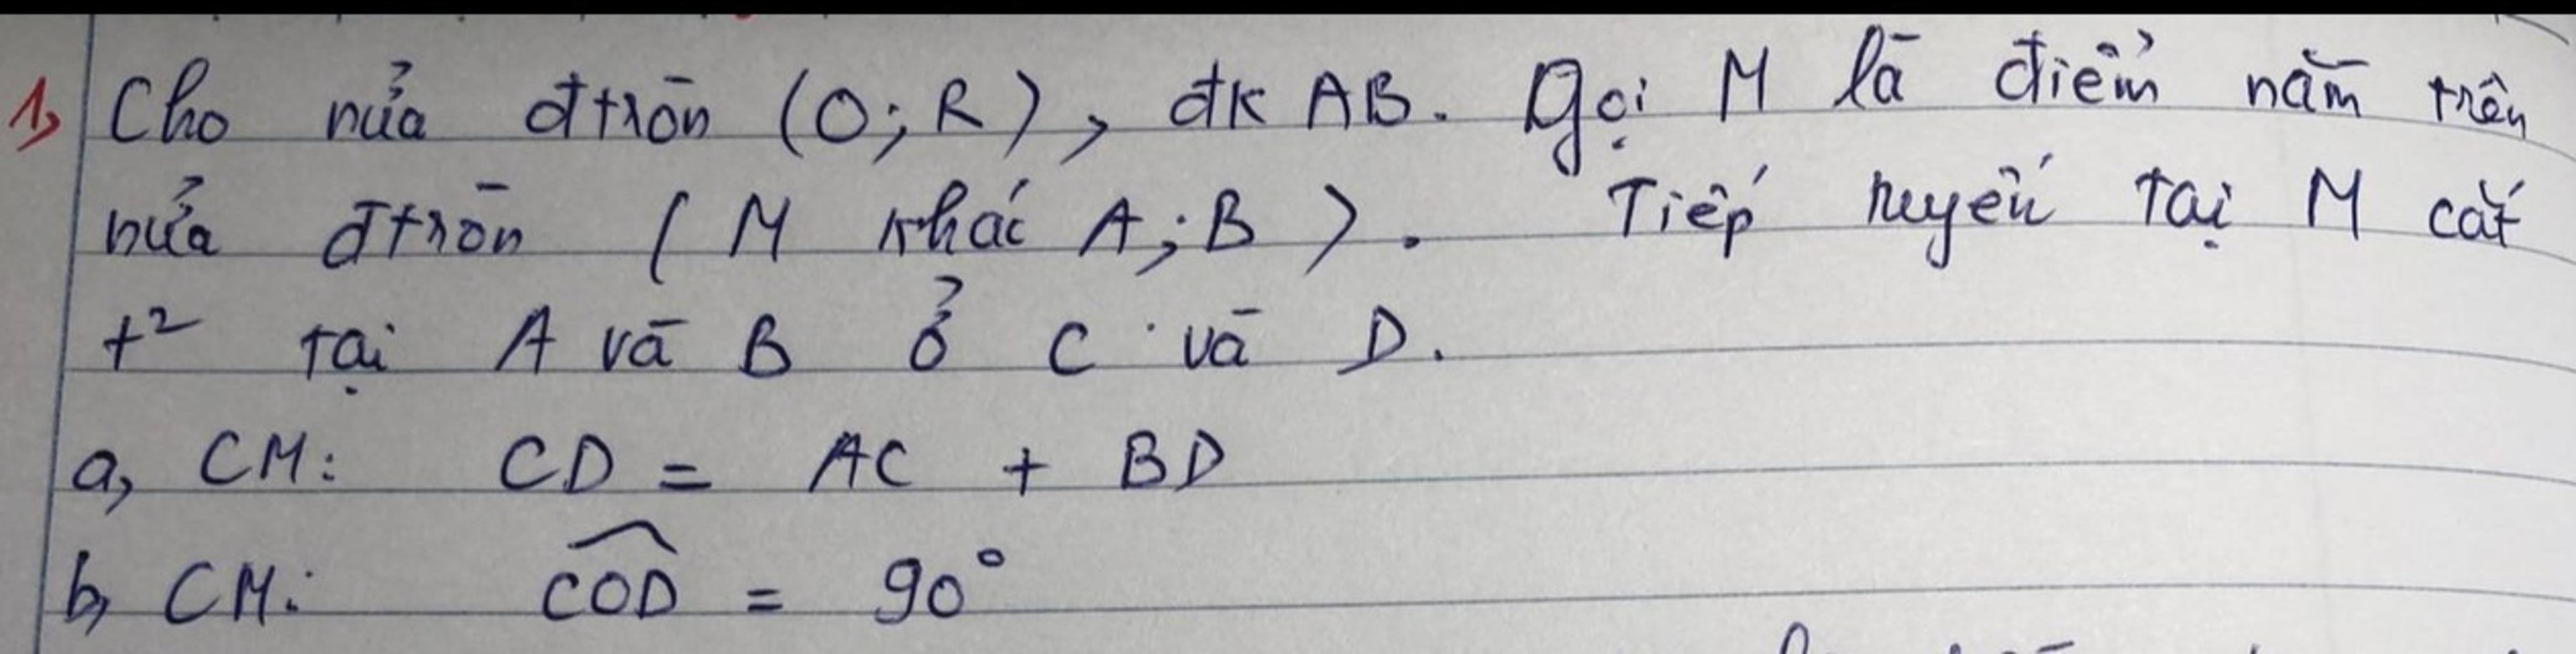 1, Cho nửa đtròn (O; R), đk AB. Gọi M là điểm nằm trên
nửa đtròn ( M khác A; B ). Tiếp tuyến tại M cắt
t² tại A và B ở C và D.
a, CM: CD = AC + BD
b, CM: \widehat{COD} = 90°